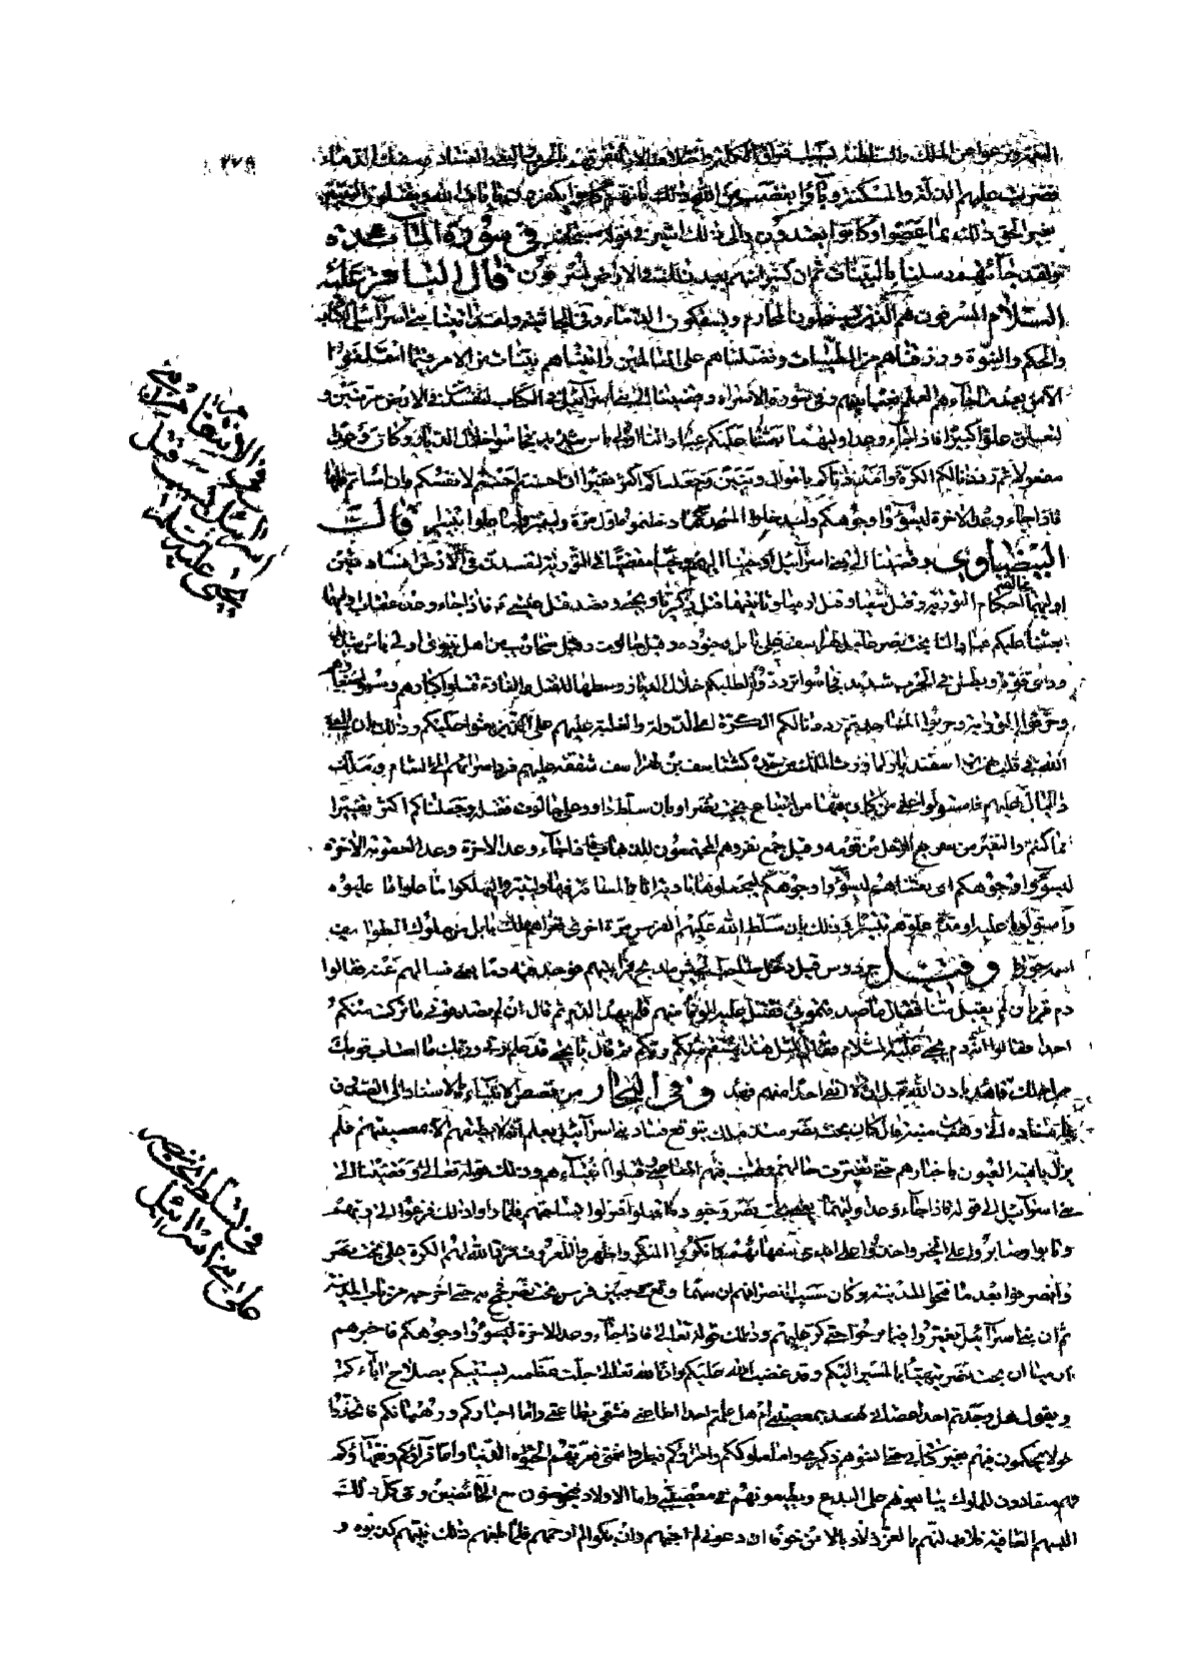 ٢٧٨
فضربت عليهم الذلة والمسكنة وباؤا بغضب من الله ذلك بانهم كانوا يكفرون بايات الله ويقتلون النبيين
بغير الحق ذلك بما عصوا وكانوا يعتدون والى ذلك اشير في قوله في سورة المائدة
ولقد جائتهم رسلنا بالبينات ثم ان كثيرا منهم بعد ذلك في الارض لمسرفون قال الباقر عليه
السلام المسرفون هم الذين يستحلون المحارم ويسفكون الدماء وفي الجاثية ولقد اتينا بني اسرائيل الكتاب
والحكم والنبوة ورزقناهم من الطيبات وفضلناهم على العالمين واتيناهم بينات من الامر فما اختلفوا
الا من بعد ما جاءهم العلم بغيا بينهم وفي سورة الاسراء وقضينا الى بني اسرائيل في الكتاب لتفسدن في الارض مرتين و
لتعلن علوا كبيرا فاذا جاء وعد اوليهما بعثنا عليكم عبادا لنا اولي باس شديد فجاسوا خلال الديار وكان وعدا
مفعولا ثم رددنا لكم الكرة عليهم وامددناكم باموال وبنين وجعلناكم اكثر نفيرا ان احسنتم احسنتم لانفسكم وان اسأتم فلها
فاذا جاء وعد الاخرة ليسوؤا وجوهكم وليدخلوا المسجد كما دخلوه اول مرة وليتبروا ما علوا تتبيرا قالت
البيضاوي وقضينا الى بني اسرائيل اوحينا اليهم وحيا مقضيا في التورية لتفسدن في الارض افسادة مرتين
اوليهما مخالفة احكام التورية وقتل شعيا وقيل ارميا وثانيهما قتل زكريا ويحيى وقصد قتل عيسى فاذا جاء وعد عقاب اوليهما
بعثنا عليكم عبادا لنا بخت نصر عامل لهراسف على بابل وجنوده وقيل جالوت وقيل سنحاريب من اهل نينوى اولي باس شديد
ذوي قوة وبطش في الحرب شديد فجاسوا ترددوا لطلبكم خلال الديار وسطها للقتل والغارة فقتلوا كبارهم وسبوا صغارهم
وحرقوا التورية وخربوا المسجد ثم رددنا لكم الكرة اي الدولة والغلبة عليهم على الذين بعثوا عليكم وذلك بان القى
الله في قلب بهمن اسفنديار لما ورث الملك من جده كشتاسف بن لهراسف شفقة عليهم فرد اسراهم الى الشام وملك
دانيال عليهم فاستولوا على من كان فيها من اتباع بخت نصر او بان سلط داود على جالوت فقتله وجعلناكم اكثر نفيرا
مما كنتم والنفير من ينفر مع الرجل من قومه وقيل جمع نفر وهم المجتمعون للذهاب فاذا جاء وعد الاخرة وعد العقوبة الاخرة
ليسوؤا وجوهكم اي بعثناهم ليسوؤا وجوهكم ليجعلوها بادية اثار المساءة فيها وليتبروا ليهلكوا ما علوا ما غلبوه
واستولوا عليه او مدة علوهم تتبيرا وذلك بان سلط الله عليهم الفرس مرة اخرى فغزاهم ملك بابل من ملوك الطوائف
اسمه وقيل جردوس قيل دخل صاحب الجيش مذبح قرابينهم فوجد فيه دما يغلي فسالهم عنه فقالوا
دم قربان لم يقبل منا فقال ما صدقتموني فقتل عليه الوفا منهم فلم يهدأ الدم ثم قال ان لم تصدقوني ما تركت منكم
احدا فقالوا انه دم يحيى عليه السلام فقال لمثل هذا ينتقم منكم ربكم ثم قال يا يحيى قد علم ربي وربك ما اصاب قومك
من اجلك فاهدأ باذن الله قبل ان لا ابقي احدا منهم فهدأ وفي البحار من قصص الانبياء بالاسناد الى الصدوق
باسناده الى وهب بن منبه قال كان بخت نصر منذ ملك يتوقع فساد بني اسرائيل ويعلم انه لا يطيقهم الا بمعصيتهم فلم
يزل ياتيه العيون باخبارهم حتى تغيرت حالهم وفشت فيهم المعاصي وقتلوا انبياءهم وذلك قوله تعالى وقضينا الى
بني اسرائيل الى قوله فاذا جاء وعد اوليهما يعني بخت نصر وجنوده اقبلوا فنزلوا بساحتهم فلما راوا ذلك فزعوا الى ربهم
وتابوا وثابروا على الخير واخذوا على ايدي سفهائهم وانكروا المنكر واظهروا المعروف فرد الله لهم الكرة على بخت نصر
وانصرفوا بعد ما فتحوا المدينة وكان سبب انصرافهم ان سهما وقع في جبين فرس بخت نصر فجمح به حتى اخرجه من باب المدينة
ثم ان بني اسرائيل تغيروا فما برحوا حتى كر عليهم وذلك قوله تعالى فاذا جاء وعد الاخرة ليسوؤا وجوهكم فاخبرهم
ارميا ان بخت نصر يتهيأ للمسير اليكم وقد غضب الله عليكم وان الله تعالى جلت عظمته يستتيبكم بصلاح اباءكم
ويقول هل وجدتم احدا عصاني فسعد بمعصيتي ام هل علمتم احدا اطاعني فشقى بطاعتي واما احباركم ورهبانكم فاتخذوا
يحكمون فيهم بغير كتابي حتى انسوهم ذكري واما ملوككم وامراؤكم فبطروا نعمتي وغرتهم الحيوة الدنيا واما قراؤكم وفقهاؤكم
فهم منقادون للملوك يبايعونهم على البدع ويطيعونهم في معصيتي واما الاولاد فيخوضون مع الخائضين وفي كل ذلك
البسهم العافية فلابدلنهم بالعز ذلا وبالامن خوفا ان دعوني لم اجبهم وان بكوا لم ارحمهم فلما بلغهم ذلك نبيهم كذبوه و
في الانتقام من بني
اسرائيل بسبب قتل
يحيى عليه السلام
في تسلط بخت نصر
على بني اسرائيل